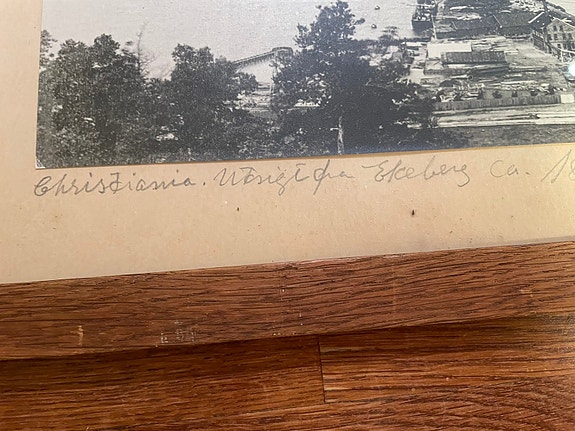 Christiania. Utsigt fra Ekeberg Ca. 18